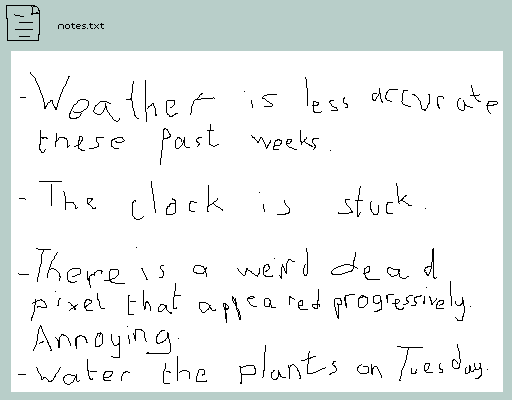 notes.txt
- Weather is less accurate
these past weeks.
- The clock is stuck.
- There is a weird dead
pixel that appeared progressively.
Annoying.
- Water the plants on Tuesday.